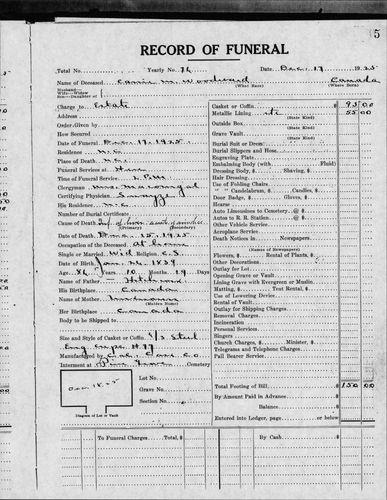 5
RECORD OF FUNERAL
Total No. Yearly No. 76 Date Dec. 17 1925
Name of Deceased Carrie M. Woodward Canada
(What Race) (Where Born)
Husband—
Wife—Widow
Son—Daughter of
Charge to Estate
Address
Order Given by
How Secured
Date of Funeral Dec. 17, 1925
Residence
Place of Death
Funeral Services at Home
Time of Funeral Service 2 P.M.
Clergyman Mrs.
Certifying Physician
His Residence
Number of Burial Certificate
Cause of Death
(Primary) (Secondary)
Date of Death Dec. 15, 1925
Occupation of the Deceased At home
Single or Married Wid Religion C.S.
Date of Birth Jan. 26, 1839
Age 86 Years 10 Months 19 Days
Name of Father
His Birthplace Canada
Name of Mother
(Maiden Name)
Her Birthplace Canada
Body to be Shipped to
Size and Style of Casket or Coffin
Manufactured by
Interment at Cemetery
Lot No.
Grave No.
Section No.
Diagram of Lot or Vault
Casket or Coffin $ 95 00
Metallic Lining etc 55 00
(State Kind)
Outside Box
(State Kind)
Grave Vault
(State Kind)
Burial Suit or Dress
Burial Slippers and Hose
Engraving Plate
Embalming Body (with Fluid)
Dressing Body, $ Shaving, $
Hair Dressing
Use of Folding Chairs
" " Candelabrum, $ Candles, $
Door Badge, $ Gloves, $
Hearse
Auto Limousines to Cemetery @ $
Autos to R. R. Station @ $
Other Vehicle Service
Aeroplane Service
Death Notices in Newspapers
(Names of Newspapers)
Flowers, $ Rental of Plants, $
Other Decorations
Outlay for Lot
Opening Grave or Vault
Lining Grave with Evergreen or Muslin
Matting, $ Tent Rental, $
Use of Lowering Device
Rental of Vault
Outlay for Shipping Charges
Removal Charges
Incineration
Personal Services
Singers
Church Charges, $ Minister, $
Telegrams and Telephone Charges
Pall Bearer Service
Total Footing of Bill $ 150 00
By Amount Paid in Advance
Balance $
Entered into Ledger, page or below
To Funeral Charges Total, $ By Cash $